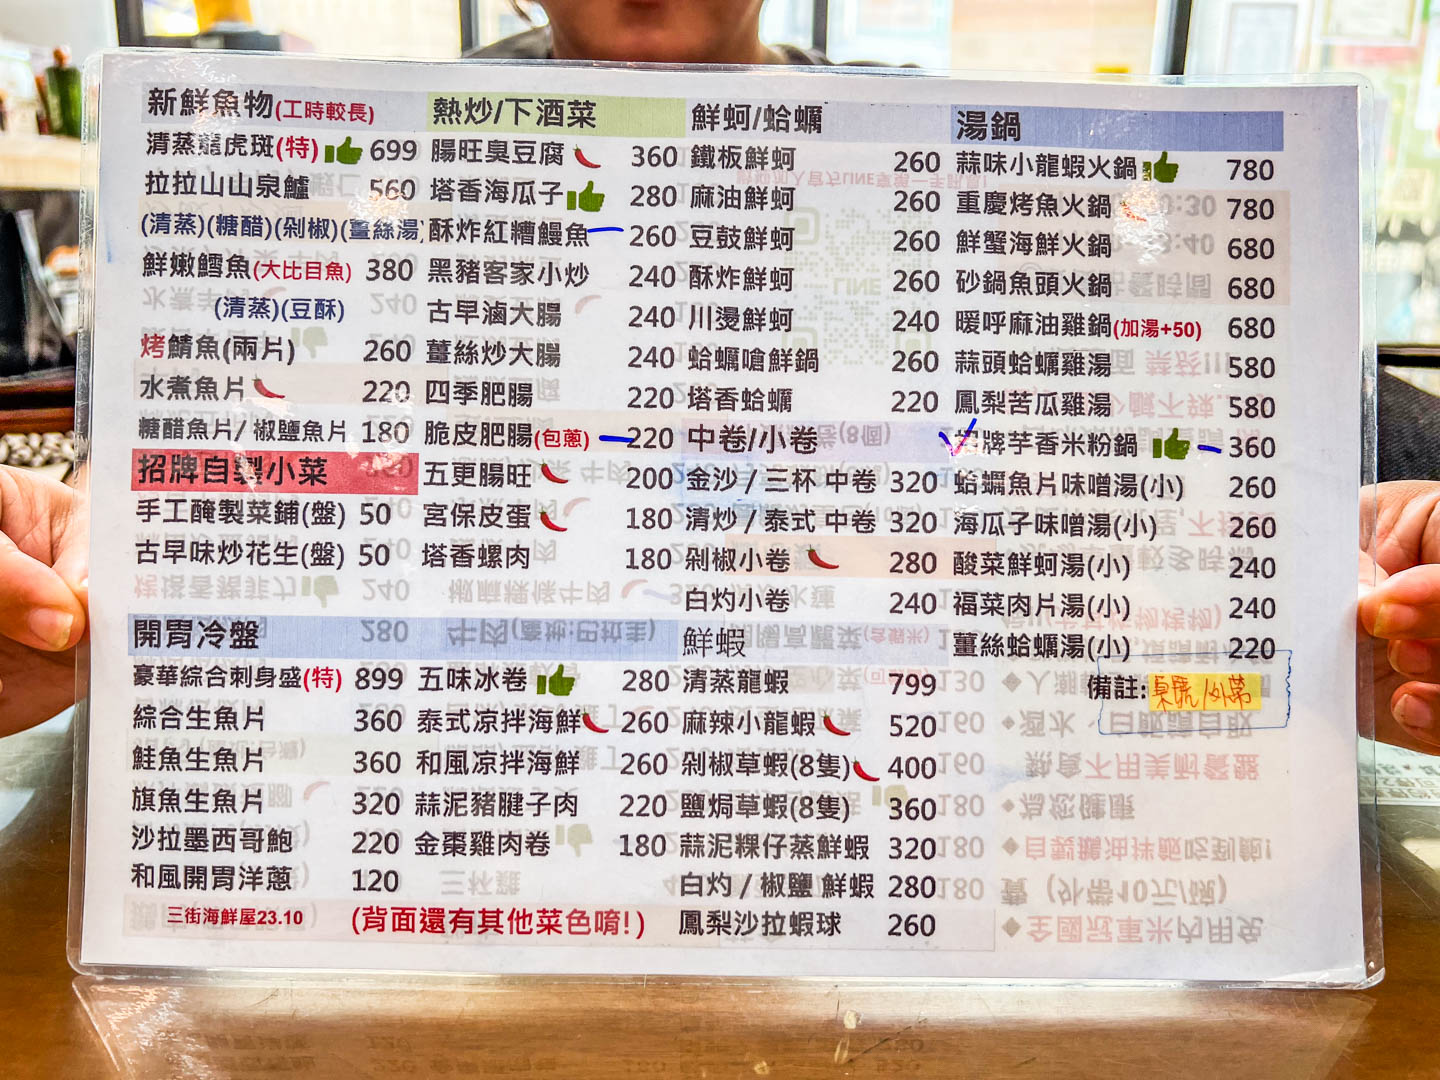 新鮮魚物(工時較長)
清蒸龍虎斑(特) 699
拉拉山山泉鱸 560
(清蒸)(糖醋)(剁椒)(薑絲湯)
鮮嫩鱈魚(大比目魚) 380
(清蒸)(豆酥)
烤鯖魚(兩片) 260
水煮魚片 220
糖醋魚片/ 椒鹽魚片 180
招牌自製小菜
手工醃製菜鋪(盤) 50
古早味炒花生(盤) 50
熱炒/下酒菜
腸旺臭豆腐 360
塔香海瓜子 280
酥炸紅糟鰻魚 260
黑豬客家小炒 240
古早滷大腸 240
薑絲炒大腸 240
四季肥腸 220
脆皮肥腸(包蔥) 220
五更腸旺 200
宮保皮蛋 180
塔香螺肉 180
開胃冷盤
豪華綜合刺身盛(特) 899
綜合生魚片 360
鮭魚生魚片 360
旗魚生魚片 320
沙拉墨西哥鮑 220
和風開胃洋蔥 120
五味冰卷 280
泰式凉拌海鮮 260
和風凉拌海鮮 260
蒜泥豬腱子肉 220
金棗雞肉卷 180
三街海鮮屋23.10
(背面還有其他菜色唷!)
鮮蚵/蛤蠣
鐵板鮮蚵 260
麻油鮮蚵 260
豆鼓鮮蚵 260
酥炸鮮蚵 260
川燙鮮蚵 240
蛤蠣嗆鮮鍋 260
塔香蛤蠣 220
中卷/小卷
金沙 / 三杯 中卷 320
清炒 / 泰式 中卷 320
剁椒小卷 280
白灼小卷 240
鮮蝦
清蒸龍蝦 799
麻辣小龍蝦 520
剁椒草蝦(8隻) 400
鹽焗草蝦(8隻) 360
蒜泥粿仔蒸鮮蝦 320
白灼 / 椒鹽 鮮蝦 280
鳳梨沙拉蝦球 260
湯鍋
蒜味小龍蝦火鍋 780
重慶烤魚火鍋 780
鮮蟹海鮮火鍋 680
砂鍋魚頭火鍋 680
暖呼麻油雞鍋(加湯+50) 680
蒜頭蛤蠣雞湯 580
鳳梨苦瓜雞湯 580
招牌芋香米粉鍋 360
蛤蠣魚片味噌湯(小) 260
海瓜子味噌湯(小) 260
酸菜鮮蚵湯(小) 240
福菜肉片湯(小) 240
薑絲蛤蠣湯(小) 220
備註:桌號/外帶